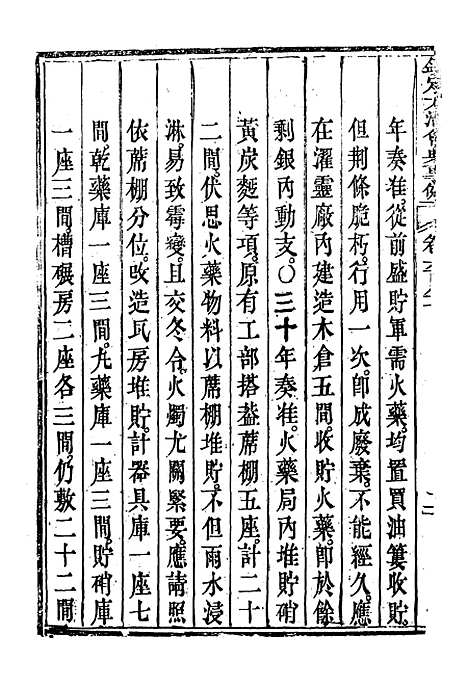 欽定大清會典事例
年奏准。從前盛貯軍需火藥。均置買油簍收貯。
但荆條脆朽。行用一次。卽成廢棄。不能經久。應
在濯靈廠內建造木倉五間。收貯火藥。卽於餘
剩銀內動支。○三十年奏准。火藥局內堆貯硝
黃炭麪等項。原有工部搭葢蓆棚五座。計二十
二間。伏思火藥物料以蓆棚堆貯。不但雨水浸
淋。易致霉變。且交冬令。火燭尤關緊要。應請照
依蓆棚分位。改造瓦房堆貯。計器具庫一座七
間。乾藥庫一座三間。丸藥庫一座三間。貯硝庫
一座三間。槽碾房二座各三間。仍敷二十二間